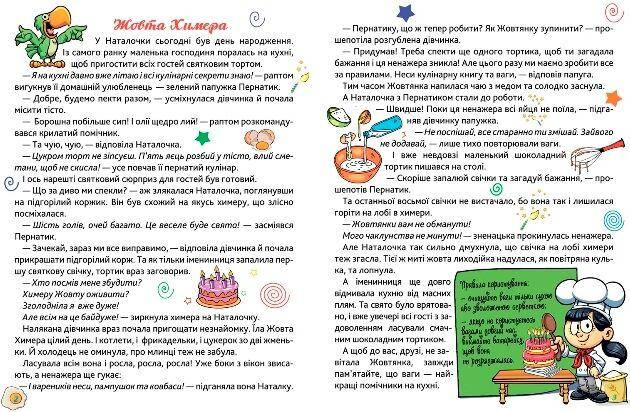 Жовта Химера
У Наталочки сьогодні був день народження.
Із самого ранку маленька господиня поралась на кухні,
щоб пригостити всіх гостей святковим тортом.
— Я на кухні давно вже літаю і всі кулінарні секрети знаю! — раптом
вигукнув її домашній улюбленець — зелений папужка Пернатик.
— Добре, будемо пекти разом, — усміхнулася дівчинка й почала
місити тісто.
— Борошна побільше сип! І олії щедро лий! — раптом розкомандував
крилатий помічник.
— Та чую, чую, — відповіла Наталочка.
— Цукром торт не зіпсуєш. П'ять яєць розбий у тісто, влий смета-
ни, щоб не скисла! — усе повчав її пернатий кулінар.
І ось нарешті святковий сюрприз для гостей був готовий.
— Що за диво ми спекли? — аж злякалася Наталочка, поглянувши
на підгорілий коржик. Він був схожий на якусь химеру, що злісно
посміхалася.
— Шість голів, очей багато. Це веселе буде свято! — засміявся
Пернатик.
— Зачекай, зараз ми все виправимо, — відповіла дівчинка й почала
прикрашати підгорілий корж. Та як тільки іменинниця запалила пер-
шу святкову свічку, тортик враз заговорив.
— Хто посмів мене збудити?
Химеру Жовту оживити?
Зголодніла я вже дуже!
Але всім на це байдуже! — зиркнула химера на Наталочку.
Налякана дівчинка враз почала пригощати незнайомку. Їла Жовта
Химера цілий день. І котлети, і фрикадельки, і цукерок зо дві жмень-
ки. Й холодець не оминула, про млинці теж не забула.
Ласувала всім вона і росла, росла, росла! Уже боки з вікон звиса-
ють, а ненажера ще гукає:
— І вареників неси, пампушок та ковбаси! — підганяла вона Наталку.
2
— Пернатику, що ж тепер робити? Як Жовтянку зупинити? — про-
шепотіла розгублена дівчинка.
— Придумав! Треба спекти ще одного тортика, щоб ти загадала
бажання і ця ненажера зникла! Але цього разу ми маємо зробити все
за правилами. Неси кулінарну книгу та ваги, — відповів папуга.
Тим часом Жовтянка напилася чаю з медом та солодко заснула.
А Наталочка з Пернатиком стали до роботи.
— Швидше! Поки ця ненажера всі яйця не поїла, — підга-
няв дівчинку папужка.
— Не поспішай, все старанно ти змішай. Зайвого
не додавай, — лише тихо повторювали ваги.
І вже невдовзі маленький шоколадний
тортик пишався на столі.
— Скоріше запалюй свічки та загадуй бажання, — про-
шепотів Пернатик.
Та останньої восьмої свічки не вистачало, бо вона так і лишилася
горіти на лобі в химери.
— Жовтянки вам не обманути!
Мого чаклунства не минути! — зненацька прокинулась ненажера.
Але Наталочка так сильно дмухнула, що свічка на лобі химери
теж згасла. Тієї ж миті жовта лиходійка надулася, як повітряна куль-
ка, та лопнула.
А іменинниця ще довго
відмивала кухню від масних
плям. Та свято було врятова-
но, і вже увечері всі гості з за-
доволенням ласували смач-
ним шоколадним тортиком.
А щоб до вас, друзі, не за-
вітала Жовтянка, завжди
пам'ятайте, що ваги — най-
кращі помічники на кухні.
Правила користування: